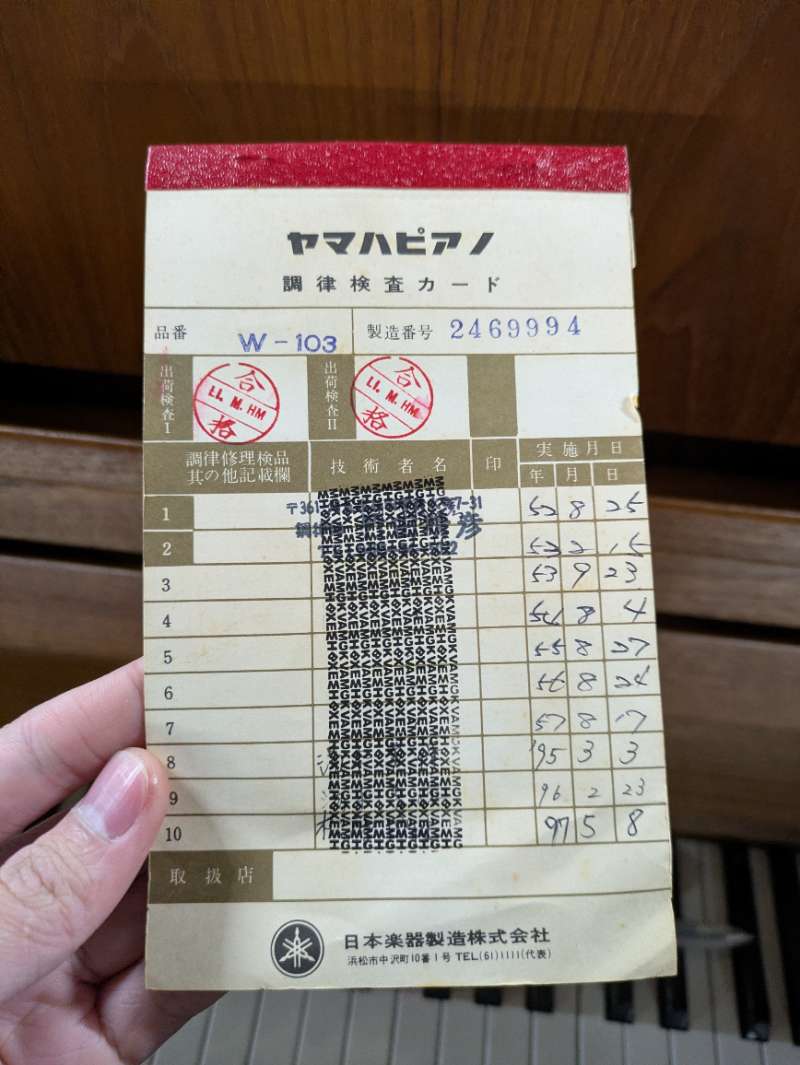 ヤマハピアノ
調律検査カード
品番 W-103 製造番号 2469994
出荷検査I 合格 LL. M. HM 出荷検査II 合格 LL. M. HM
調律修理検品其の他記載欄 技術者名 印 実施月日
年 月 日
〒361
1 52 8 25
2 53 2 15
3 53 9 23
4 54 8 4
5 55 8 27
6 56 8 24
7 57 8 17
8 '95 3 3
9 96 2 23
10 97 5 8
取扱店
日本楽器製造株式会社
浜松市中沢町10番1号 TEL(61)1111(代表)